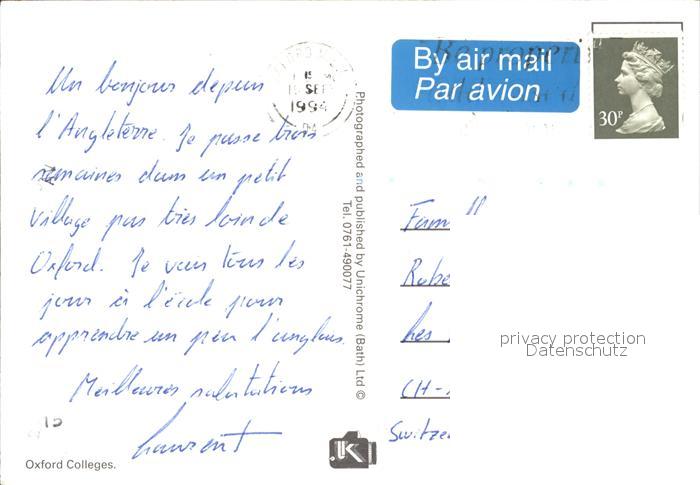 Un bonjour depuis
l'Angleterre. Je passe trois
semaines dans un petit
village pas très loin de
Oxford. Je vais tous les
jour à l'école pour
apprendre un peu l'anglais.
Meilleures salutations
Laurent
15
Oxford Colleges.
SEP
1994
Photographed and published by Unichrome (Bath) Ltd ©
Tel. 0761-490077
By air mail
Par avion
30P
Fam
Robe
Les
CH-
Switze
privacy protection
Datenschutz